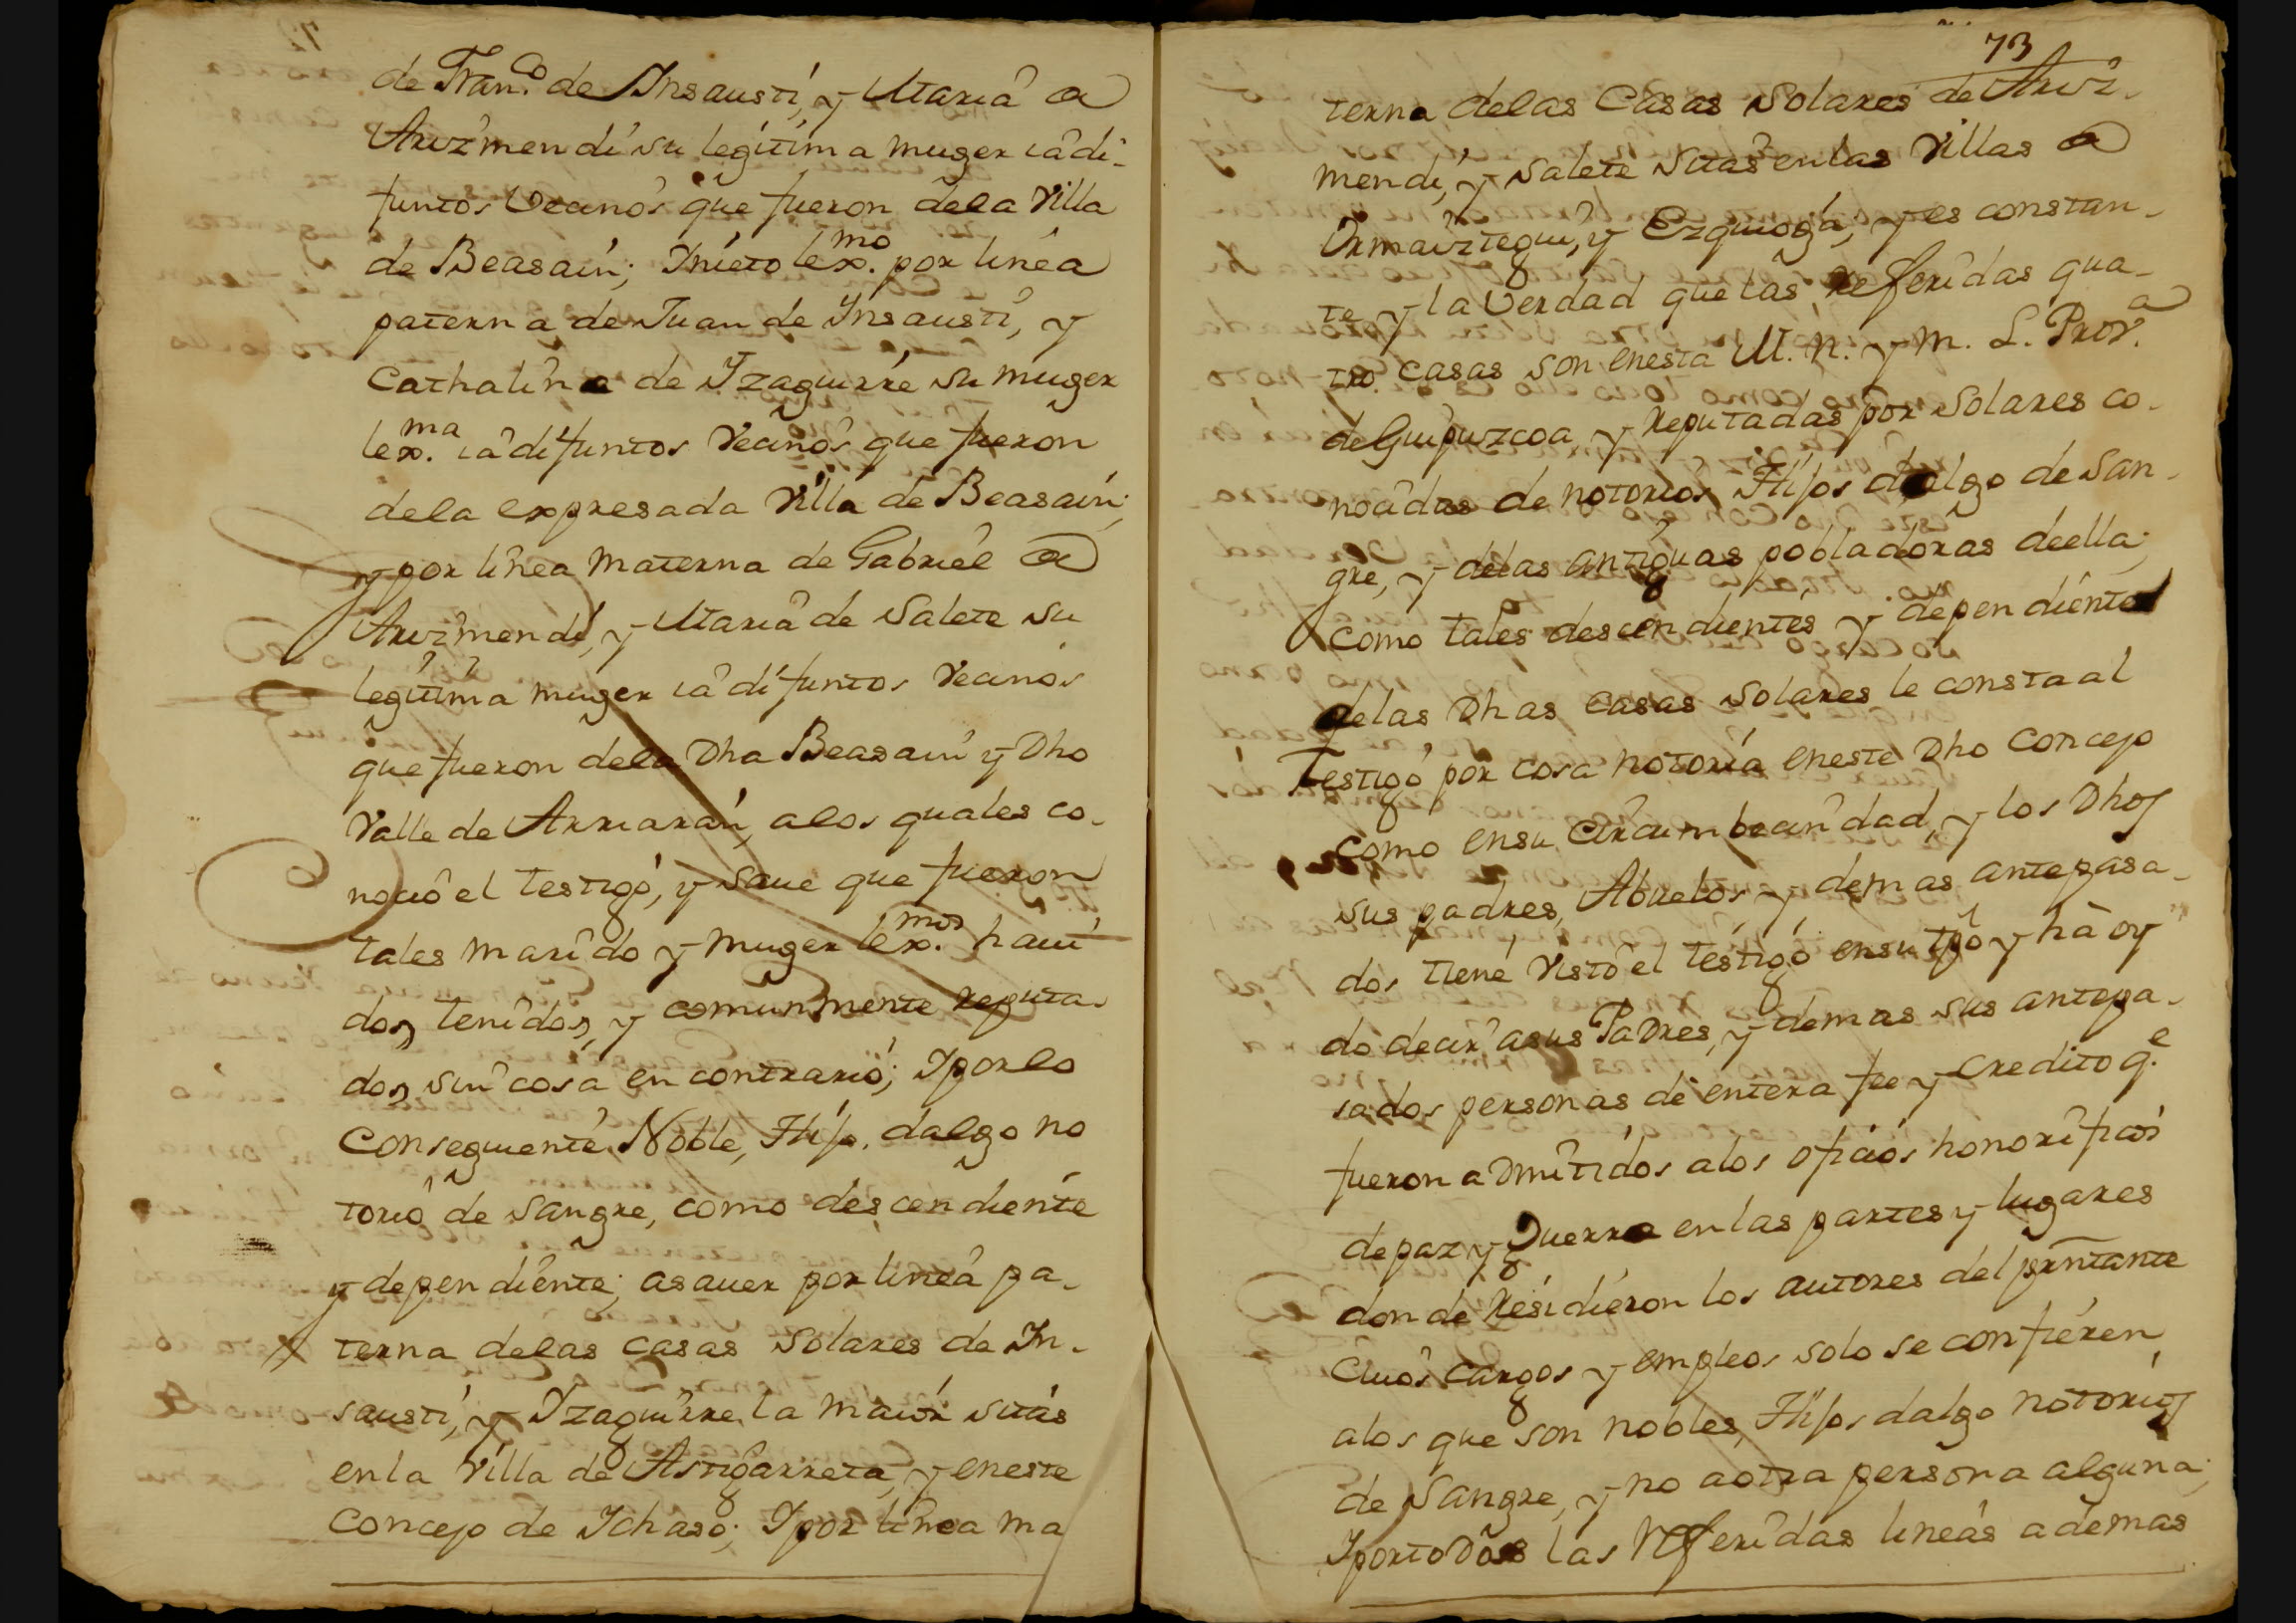 de Fran.co de Insausti, y Maria de
Arizmendi su legitima muger ia di-
funtos Vecinos que fueron dela Villa
de Beasain; Inieto lex.mo por linea
paterna de Juan de Insausti, y
Cathalina de Yzaguirre su muger
lex.ma ia difuntos Vecinos que fueron
dela expresada Villa de Beasain;
y por linea materna de Gabriel de
Arizmendi, y Maria de Salete su
legitima muger ia difuntos Vecinos
que fueron dela Dha Beasain y Dho
Valle de Arriaran, alos quales co-
nocio el testigo, y saue que fueron
tales marido y muger lex.mos haui
dos, tenidos, y comunmente reputa-
dos, sin cosa en contrario; Y por lo
Conseguente Noble, Hijo dalgo no
torio de Sangre, como descendiente
y dependiente; asauer por linea pa-
terna delas casas Solares de In-
sausti, y Yzaguirre la maior sitas
enla Villa de Astigarreta, y eneste
Concejo de Ichaso; Y por linea ma
73
terna delas Casas Solares de Ariz-
mendi, y Salete sitas enlas Villas de
Ormaiztegui, y Ezquioga; y es constan-
te y la Verdad que las referidas qua-
tro casas son enesta M. N. y M. L. Prov.a
de Guipuzcoa, y reputadas por Solares co-
nocidas de notorios Hijos dalgo de San-
gre, y delas antiguas pobladoras deella;
Como tales descendientes y dependientes
delas Dhas casas Solares le consta al
Testigo por cosa notoria eneste Dho Concejo
Como ensu circumbecindad, y los Dhos
sus padres, Abuelos y demas antepasa-
dos tiene visto el testigo ensu tpo y ha oy
do decir asus Padres, y demas sus antepa-
sados personas de entera fee y credito q.e
fueron aDmitidos alos oficios honorificos
de paz y Guerra enlas partes y lugares
donde residieron los autores del pñtante
Cuios cargos y empleos solo se confieren
alos que son nobles, Hijos dalgo notorios
de Sangre, y no aotra persona alguna;
Y portoDas las referidas lineas ademas